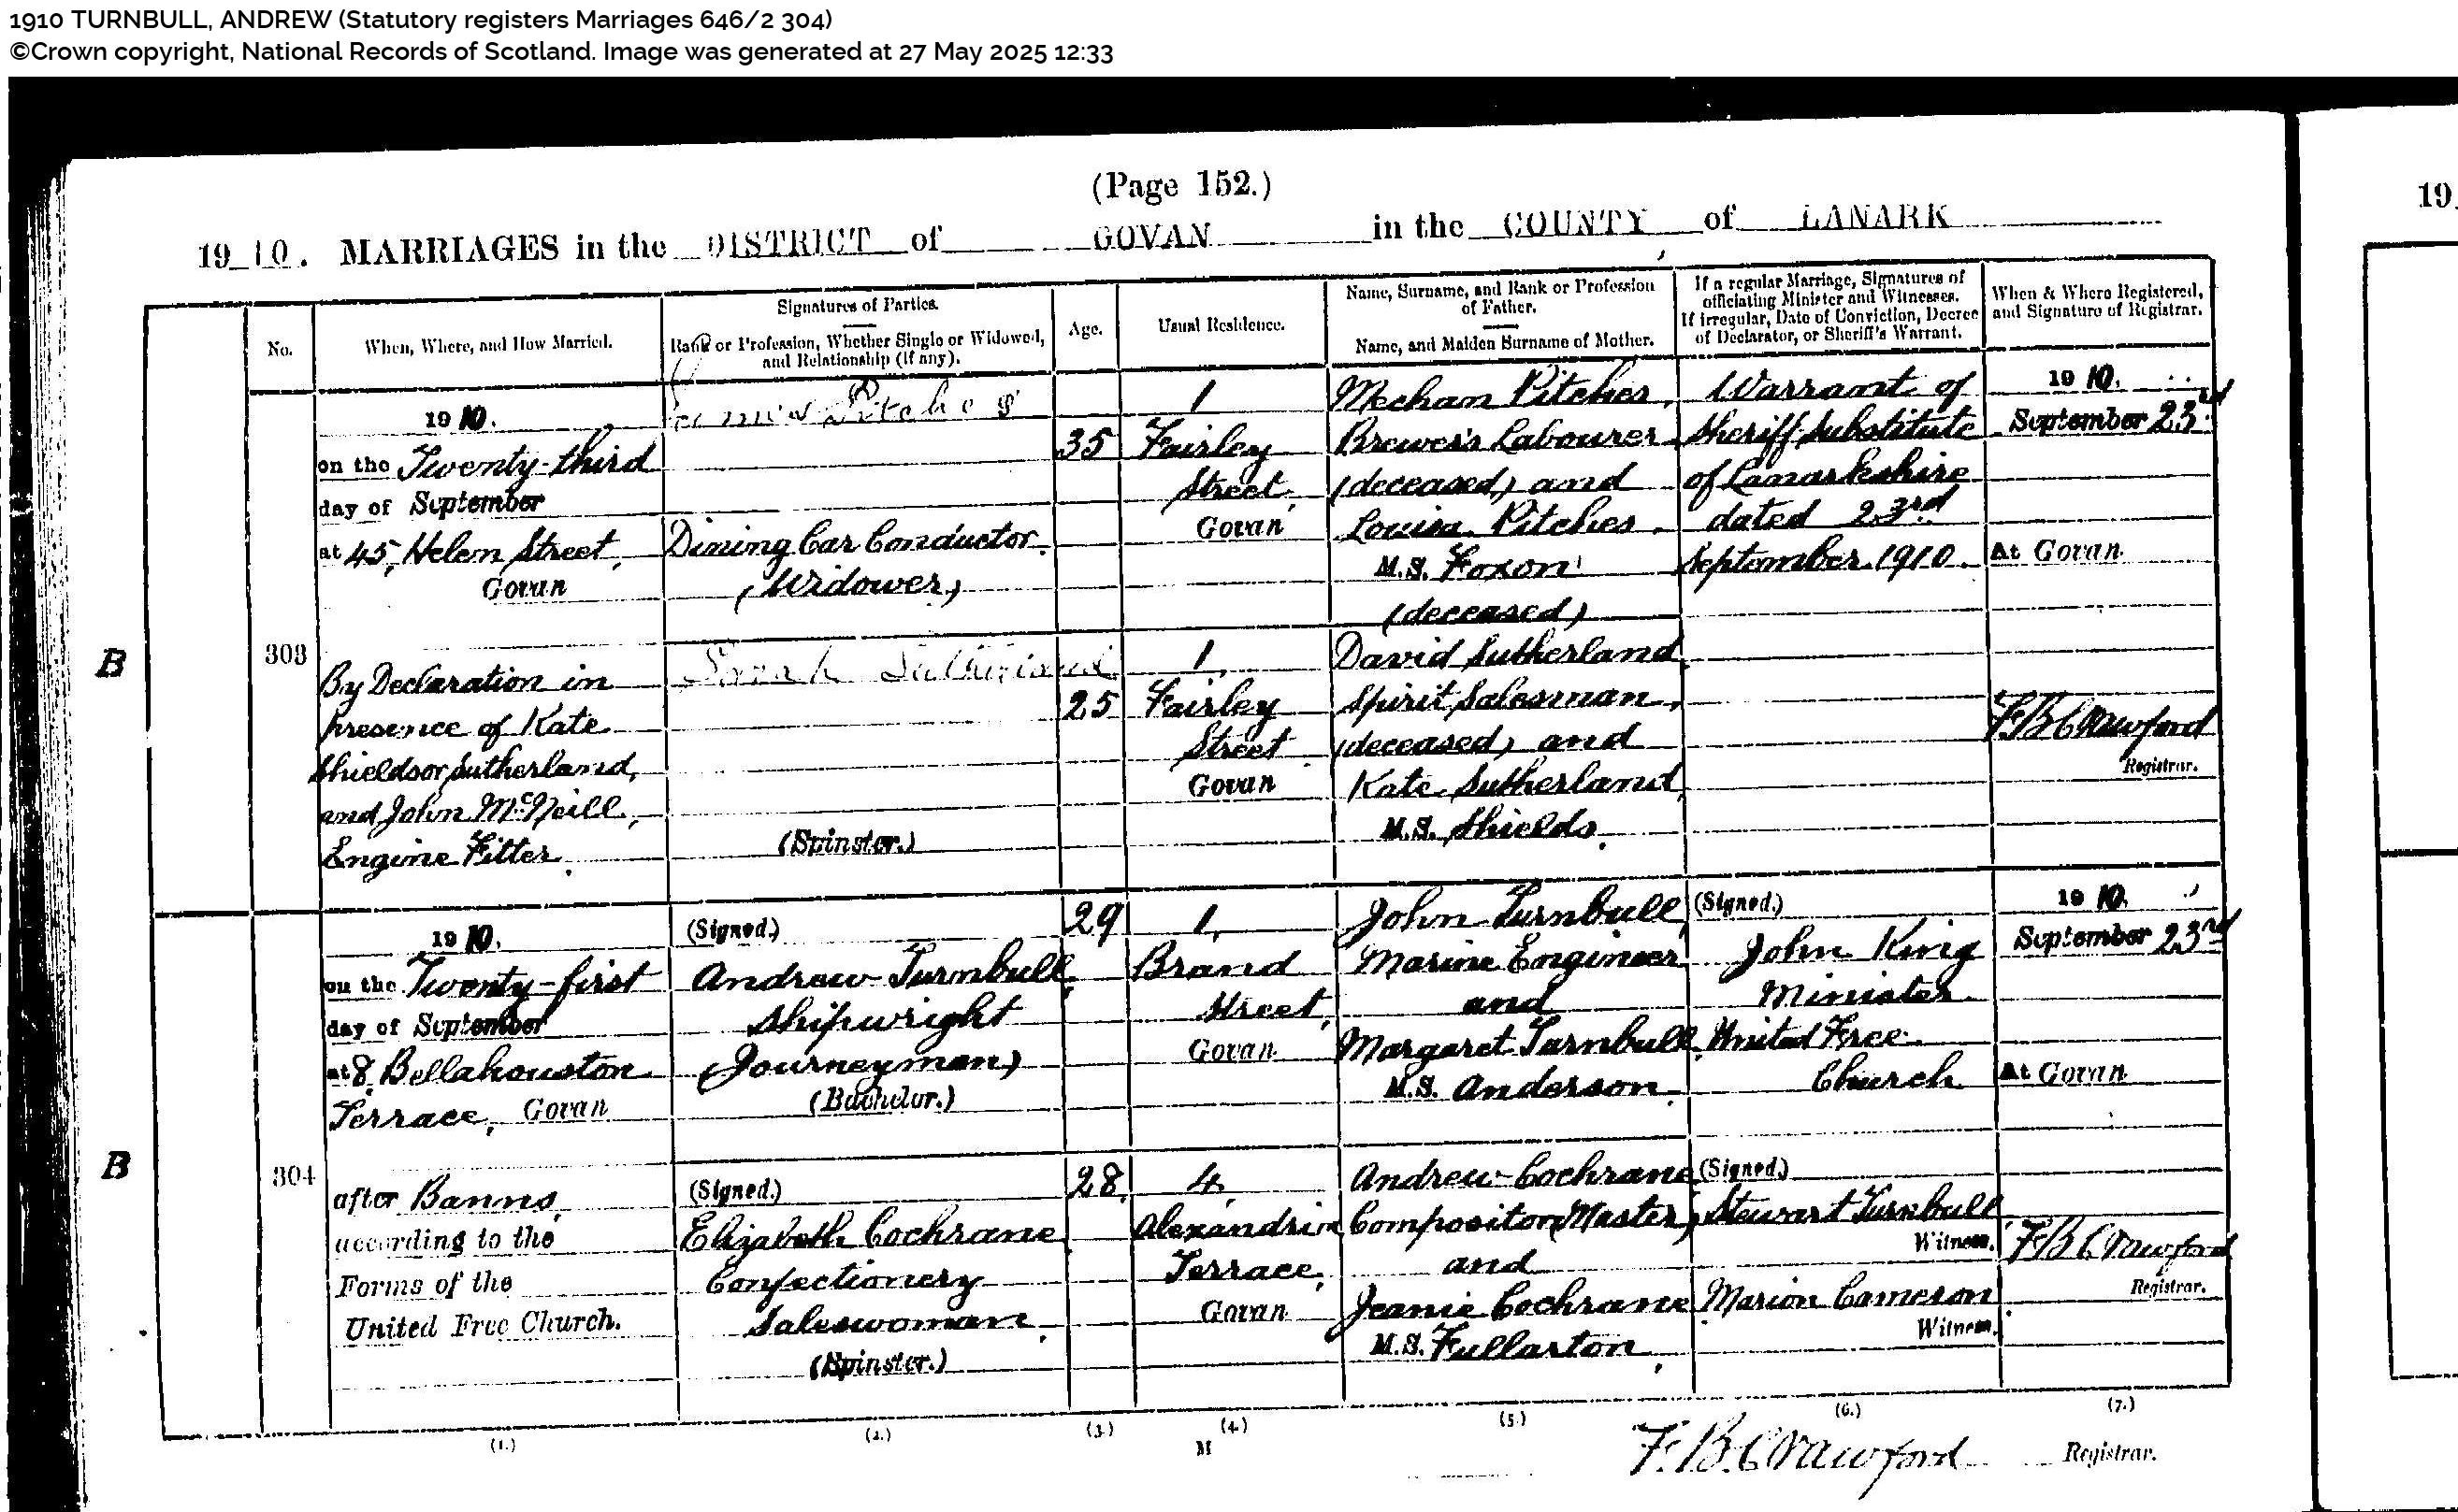 1910 TURNBULL, ANDREW (Statutory registers Marriages 646/2 304)
©Crown copyright, National Records of Scotland. Image was generated at 27 May 2025 12:33
(Page 152.)
19
1910. MARRIAGES in the DISTRICT of GOVAN in the COUNTY of LANARK
No.
When, Where, and How Married.
Signatures of Parties.
Rank or Profession, Whether Single or Widowed,
and Relationship (if any).
Age.
Usual Residence.
Name, Surname, and Rank or Profession
of Father.
Name, and Maiden Surname of Mother.
If a regular Marriage, Signatures of
officiating Minister and Witnesses.
If irregular, Date of Conviction, Decree
of Declarator, or Sheriff's Warrant.
When & Where Registered,
and Signature of Registrar.
B
303
1910.
on the Twenty-third
day of September
at 45, Helen Street,
Govan
By Declaration in
presence of Kate
Shields or Sutherland,
and John McNeill,
Engine Fitter.
Pitches
Dining Car Conductor.
(Widower)
35
1
Fairley
Street,
Govan
Mecham Pitches,
Brewer's Labourer
(deceased) and
Louisa Pitches.
M.S. Foxon
(deceased)
Warrant of
Sheriff Substitute
of Lanarkshire
dated 23rd
September 1910.
1910.
September 23rd
At Govan
Sarah Sutherland
(Spinster.)
25
1,
Fairley
Street
Govan
David Sutherland,
Spirit Salesman,
(deceased) and
Kate Sutherland,
M.S. Shields.
F. B. Crawford
Registrar.
B
304
1910.
on the Twenty-first
day of September
at 8 Bellahouston
Terrace, Govan
after Banns,
according to the
Forms of the
United Free Church.
(Signed.)
Andrew Turnbull,
Shipwright
(Journeyman)
(Bachelor.)
29
1,
Brand
Street,
Govan
John Turnbull,
Marine Engineer
and
Margaret Turnbull
M.S. Anderson.
(Signed.)
John King
Minister
United Free
Church
1910.
September 23rd
At Govan
(Signed.)
Elizabeth Cochrane
Confectionery
Saleswoman,
(Spinster.)
28
4,
Alexandria
Terrace,
Govan
Andrew Cochrane
Compositor (Master)
and
Jeanie Cochrane
M.S. Fullarton,
(Signed.)
Stewart Turnbull,
Witness.
Marion Cameron
Witness.
F. B. Crawford
Registrar.
(1.)
(2.)
(3.)
(4.)
(5.)
(6.)
(7.)
M
F. B. Crawford
Registrar.